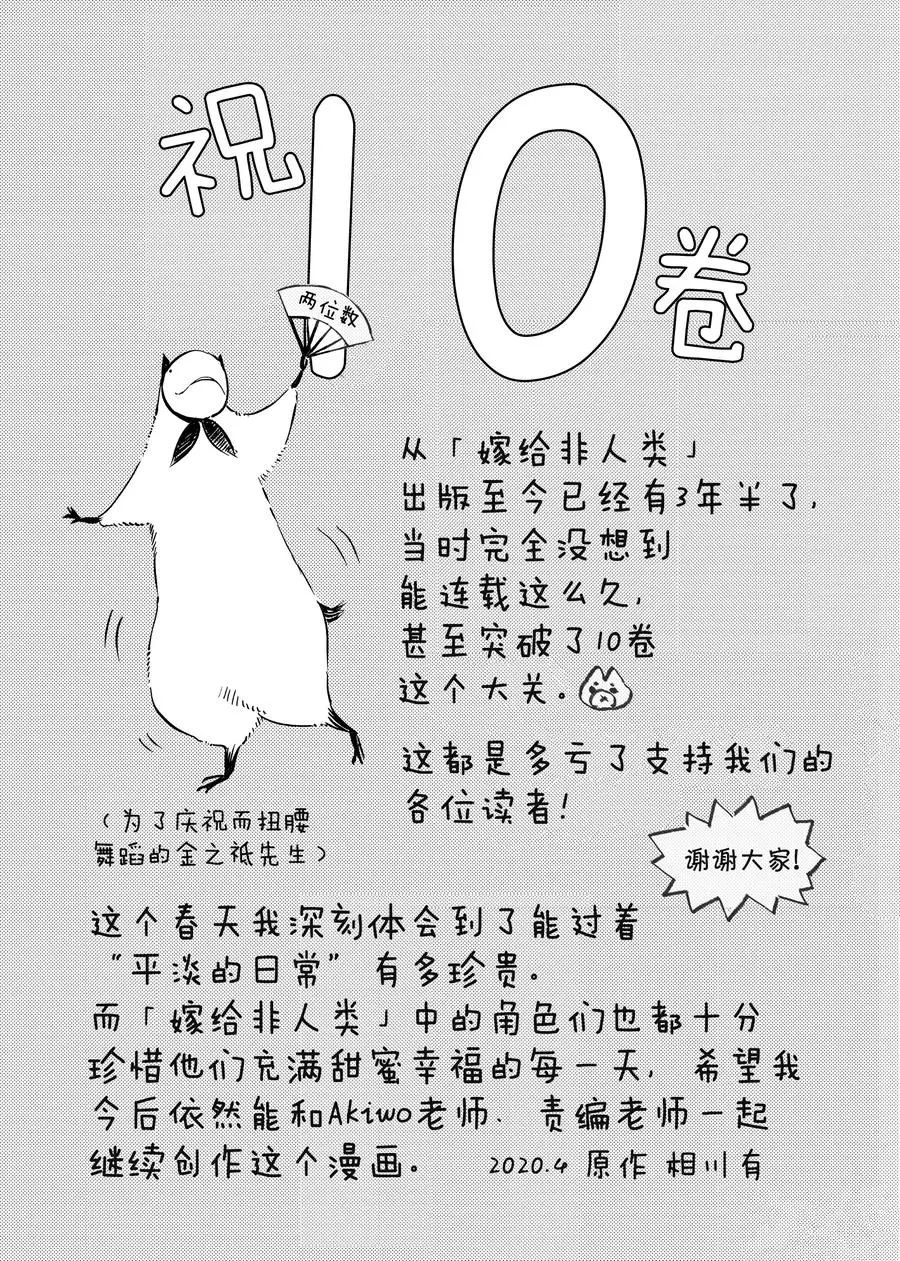 祝10卷
两位数
从「嫁给非人类」
出版至今已经有3年半了,
当时完全没想到
能连载这么久,
甚至突破了10卷
这个大关。
这都是多亏了支持我们的
各位读者!
谢谢大家!
(为了庆祝而扭腰
舞蹈的金之祇先生)
这个春天我深刻体会到了能过着
“平淡的日常”有多珍贵。
而「嫁给非人类」中的角色们也都十分
珍惜他们充满甜蜜幸福的每一天, 希望我
今后依然能和Akiwo老师、责编老师一起
继续创作这个漫画。 2020.4 原作 相川有